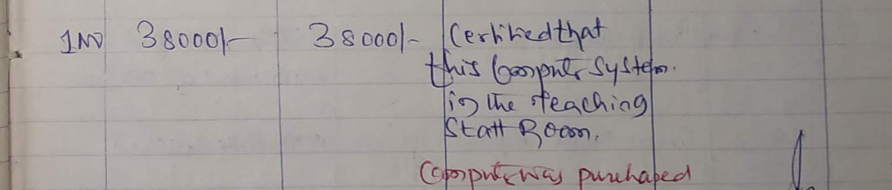 1 No 38000/- 38000/- Certified that
this Computer System.
is the teaching
Staff Room.
Computer was purchased